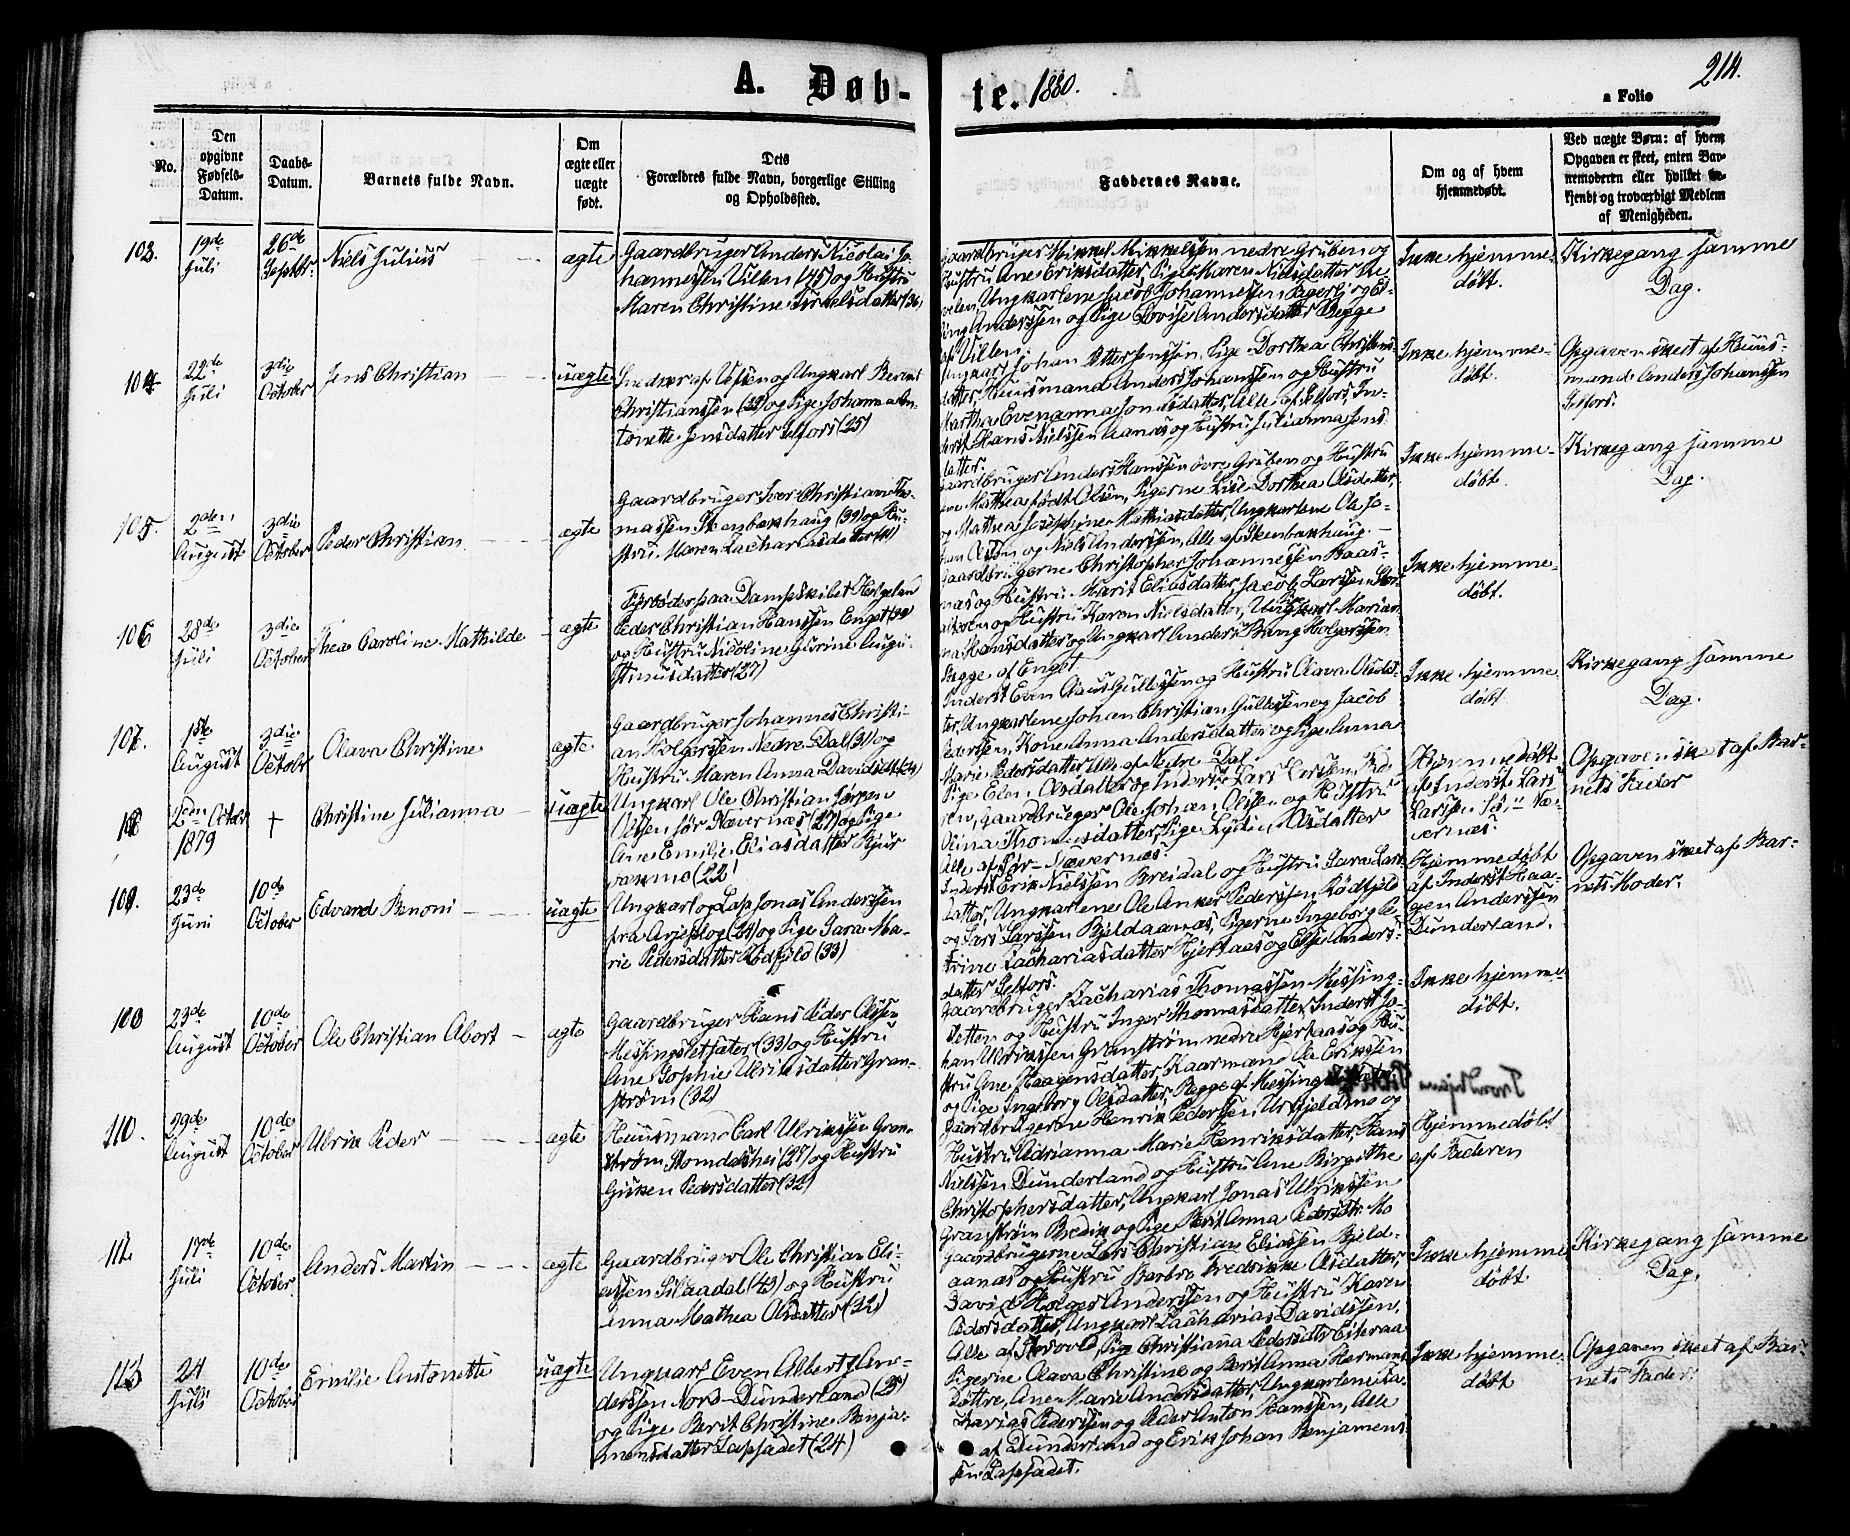 A. Døb-
te. 1880.
214.
a Folio
No.
Den opgivne Fødsels-Datum.
Daabs-Datum.
Barnets fulde Navn.
Om ægte eller uægte født.
Dets Forældres fulde Navn, borgerlige Stilling og Opholdssted.
Faddernes Navne.
Om og af hvem hjemmedøbt.
Ved uægte Børn: af hvem Opgaven er skeet, enten Barnemoderen eller hvilket bekjendt og troværdigt Medlem af Menigheden.
103.
19de Juli
26de Septbr.
Niels Julius
ægte
Gaardbruger Anders Nicolai Jo-
hannessen Villen (45) og Hustru
Maren Christine
Gaardbruger Mikkel Mikkelsen nedre Gruben og
Hustru Ane Eriksdatter, Pige Maren Nielsdatter
Ungkarlene Jacob Johannessen
Anderssen og Pige Lovise Andersdatter Begge
af Villen.
Ikke hjemme-
døbt.
Kirkegang samme
Dag.
104
22de Juli
3die October
Jens Christian
uægte
Ungkarl
Christianssen (23) og Pige Johanna An-
tonette Jensdatter Selfors (25)
Ungkarl Johan Pige Dorthea Christens-
datter, Huusmand Anders Johanssen og Hustru
Martha Evenanna Jonasdatter, Alle af Selfors, In-
derst Hans Nielssen og Hustru Julianna Jens-
datter.
Ikke hjemme-
døbt.
Opgaven skeet af Huus-
mand Anders Johanssen
Selfors.
105.
2den August
3die October
Peder Christian
ægte
Gaardbruger Iver Christian Tho-
massen Stenbækhaug (39) og Hu-
stru Maren Zachariasdatter
Gaardbruger Anders Hanssen øvre Gruben og Hustru
Mathea født Olsen, Pigerne Lise Dorthea Olsdatter,
og Mathea Josephine Mathiasdatter, Ungkarlene Ole Jo-
han Olsen og Niels Anderssen, Alle af Stenbækhaug.
Ikke hjemme-
døbt.
Kirkegang samme
Dag.
106
28de Juli
3die October
Thea Caroline Mathilde
ægte
Fyrbøder paa Dampskibet Helgeland
Peder Christian Hanssen Enget
og Hustru Nicoline Augu-
stinusdatter (27)
Gaardbrugerne Christopher Johannessen Baas-
næs og Hustru Marit Eliasdatter, Jacob Larssen
og Hustru Karen Nielsdatter, Pige Marian-
na Hansdatter og Ungkarl Anders Bang Holgerssen
Begge af Enget.
Ikke hjemme-
døbt.
107.
1ste August
3die October
Olava Christine
ægte
Gaardbruger Johannes Christi-
an Holgerssen Nedre-Dal (31) og
Hustru Maren Anna Davidsdtr (24)
Inderst Even Olaus Gullessen og Hustru Olava Olsdat-
ter, Ungkarlene Johan Christian Gullessen og Jacob
Pederssen, Kone Anna Andersdatter og Pige Anna
Marie Pedersdatter Alle af Nedre Dal
Ikke hjemme-
døbt.
Kirkegang samme
Dag.
108
2den Octbr 1879
†
Christine Julianna
uægte
Ungkarl Ole Christian Jørgen
Olssen Sør Nævernæs (27) og Pige
Ane Emilie Eliasdatter
(22)
Pige Elen Olsdatter og Inderst Lars Larssen,
Gaardbruger Ole Johan Olssen og Hustru
Olina Thomasdatter, Pige Olsdatter
Alle af Sør-Nævernæs.
Hjemmedøbt
af Inderst Lars
Larssen Sør-Næ-
vernæs.
Opgaven skeet af Bar-
nets Fader
109.
23de Juni
10de October
Edvard Benoni
uægte
Ungkarl og Lap Jonas Anderssen
fra Arjeplog (24) og Pige Sara Ma-
rie Pedersdatter Rødfjeld (33)
Inderst Erik Nielssen Bredal og Hustru Sara Lars-
datter, Ungkarlene Ole Anker Pederssen Rødfjeld
og Lars Larssen Bjeldaanæs, Pigerne Ingeborg Pe-
trine Zachariasdatter Hjertaas og Else Anders-
datter Selfors.
Hjemmedøbt
af Inderst Haa-
gen Anderssen
Dunderland.
Opgaven skeet af Bar-
nets Moder.
23de August
10de October
Ole Christian Albert
ægte
Gaardbruger Hans Peder Olssen
Messingsletsæter (33) og Hustru
Ane Sophie Ulriksdatter Gran-
strøm (32)
Gaardbruger Zacharias Thomassen Messing-
sletten og Hustru Inger Thomasdatter, Inderst Jo-
han Ulrikssen Granstrøm nedre Hjertaas og Hu-
stru Ane Haagensdatter, Kaarmand Ole Erikssen
og Pige Ingeborg Olsdatter, Begge af
Ikke hjemme-
døbt.
110.
29de August
10de October
Ulrik Peder
ægte
Huusmand Carl Ulrikssen Gran-
strøm Stormdalshei (27) og Hustru
Gisken Pedersdatter (32)
Gaardbrugerne Henrik Pederssen Urfjeldmo og
Hustru Adrianna Marie Henriksdatter, Hans
Nielssen Dunderland og Hustru Ane Birgithe
Christophersdatter, Ungkarl Jonas Ulrikssen
Granstrøm Bredek og Pige Berit Anna Pedersdtr Mo
Hjemmedøbt
af Faderen
111.
17de Juli
10de October
Anders Martin
ægte
Gaardbruger Ole Christian Eli-
assen Storaadal (43) og Hustru
Anna Mathea Olsdatter (32)
Gaardbrugerne Lars Christian Eliassen Bjeld-
aanæs og Hustru Barbro Fredrikke Olsdatter,
David Holger Anderssen og Hustru Karen
Pedersdatter, Ungkarl Zacharias Davidssen,
Alle af Storvold, Pige Christiana Pedersdtr Eiteraa
Ikke hjemme-
døbt.
Kirkegang samme
Dag.
112
24 Juli
10de October
Emilie Antonette
uægte
Ungkarl Even Albert An-
derssen Nord-Dunderland (25)
og Pige Berit Christine Benja-
minsdatter Lapsædet (24)
Pigerne Olava Christine og Berit Anna Hermans-
døttre, Ane Marie Andersdatter, Ungkarlene Za-
karias Pederssen og Peder Anton Hanssen, Alle
af Dunderland og Erik Johan Benjamins-
sen Lapsædet.
Ikke hjemme-
døbt
Opgaven skeet af Bar-
nets Fader.